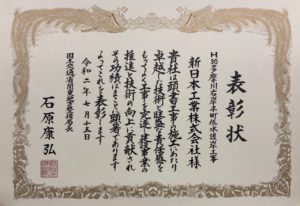 表彰状
H30多摩川右岸本町低水護岸工事
新日本工業株式会社様
貴社は頭書工事の施工にあたり
卓越した技術と旺盛な責任感を
もってよく工事を完遂し建設事業の
推進と技術の向上に貢献され
その功績はまことに顕著であります
よってこれを表彰します
令和二年七月十五日
国土交通省関東地方整備局長
石原康弘